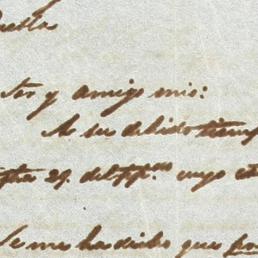 tor y amigo mio:
A su debido tiemp
29. del pp.do cuyo
Se me ha dicho que por